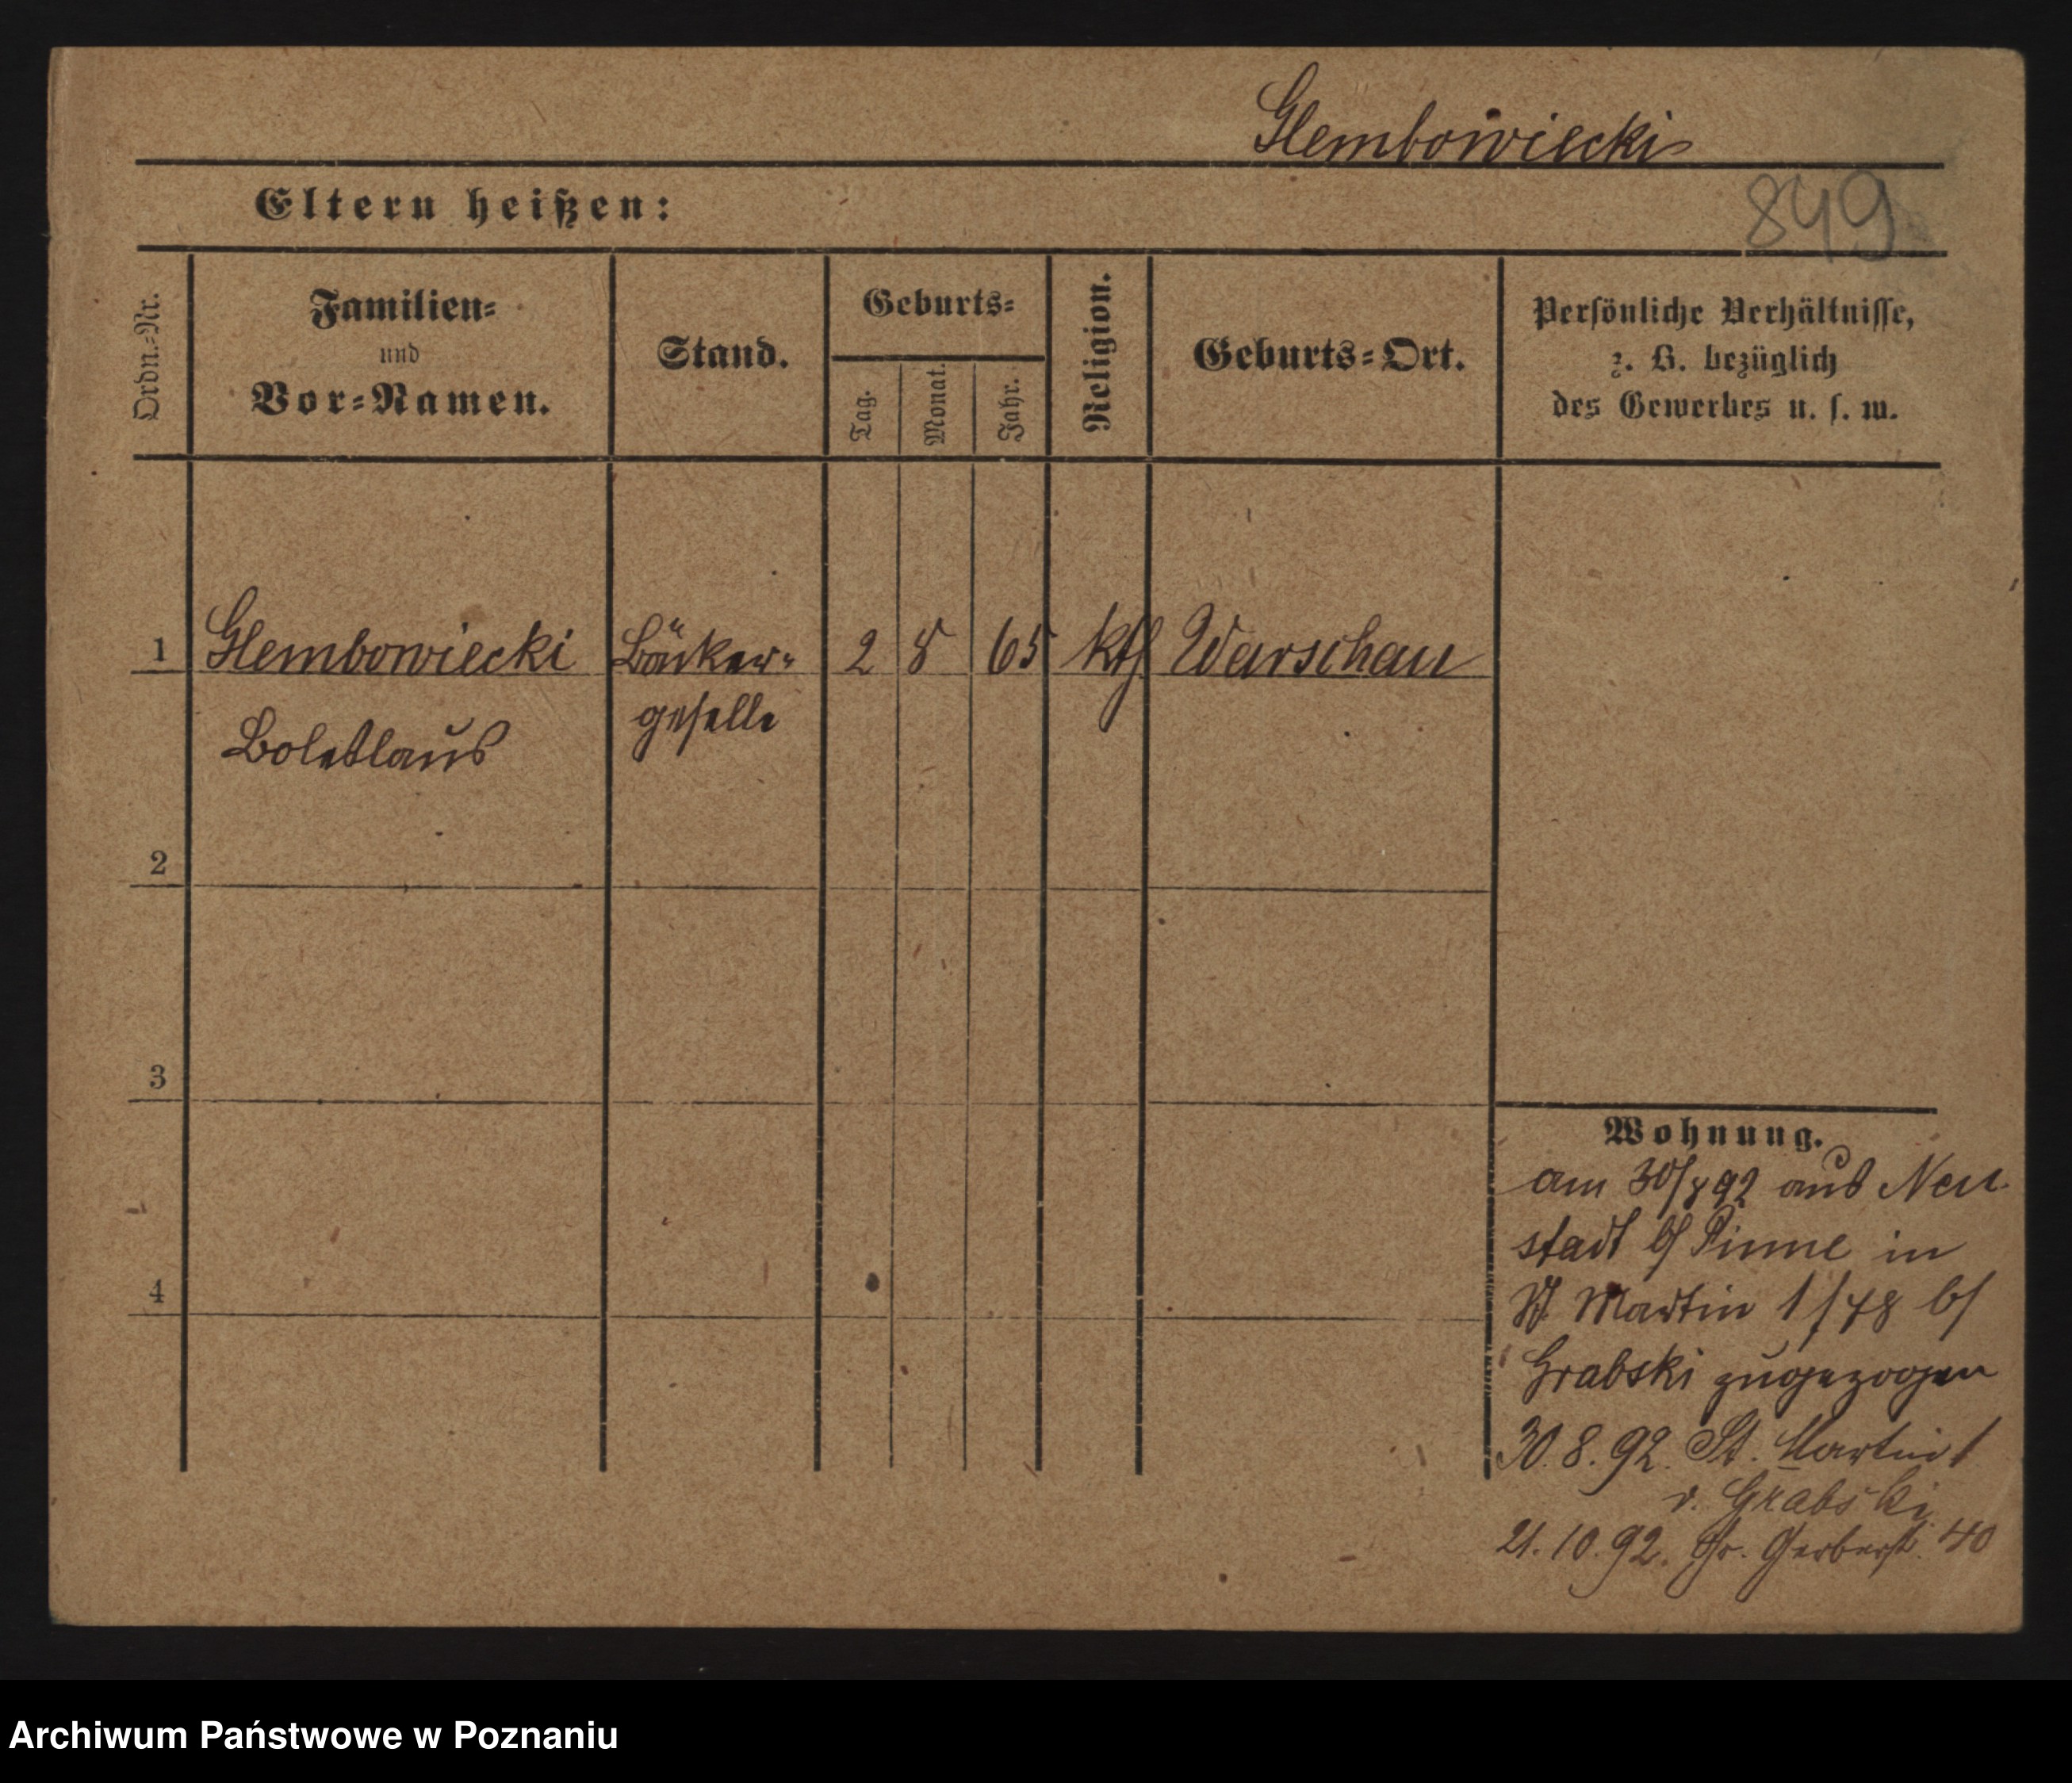 Glembowiecki
Eltern heißen:
849
Ordn.-Nr.
Familien-
und
Vor-Namen.
Stand.
Geburts-
Tag.
Monat.
Jahr.
Religion.
Geburts-Ort.
Persönliche Verhältnisse,
z. B. bezüglich
des Gewerbes u. s. w.
1 Glembowiecki Bäcker- 2 8 65 kth Warschau
Boleslaus geselle
2
3
4
Wohnung.
am 30/8 92 aus Neu
stadt b/ Pinne in
St. Martin 1/78 b/
Grabski zugezogen
30.8.92. St. Martin 1
v. Grabski
21.10.92. Gr. Gerberst. 40
Archiwum Państwowe w Poznaniu